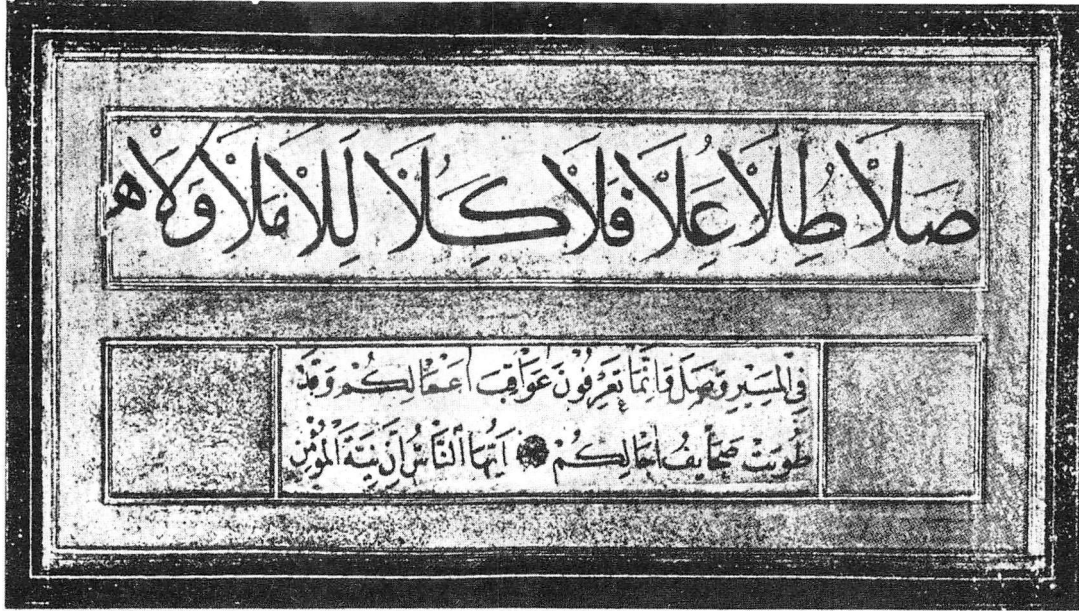 صَلَا طِلَا عُلَا فَلَا كِلَا لِلَا مَلَا وَلَا ه
فِي الْمَسِيرِ وَصَلَ فَإِنَّمَا تَعْرِفُونَ عَوَاقِبَ أَعْمَالِكُمْ وَقَدْ
طُوِيَتْ صَحَايِفُ آجَالِكُمْ أَيُّهَا النَّاسُ إِنَّ نِيَّةَ الْمُؤْمِنِ